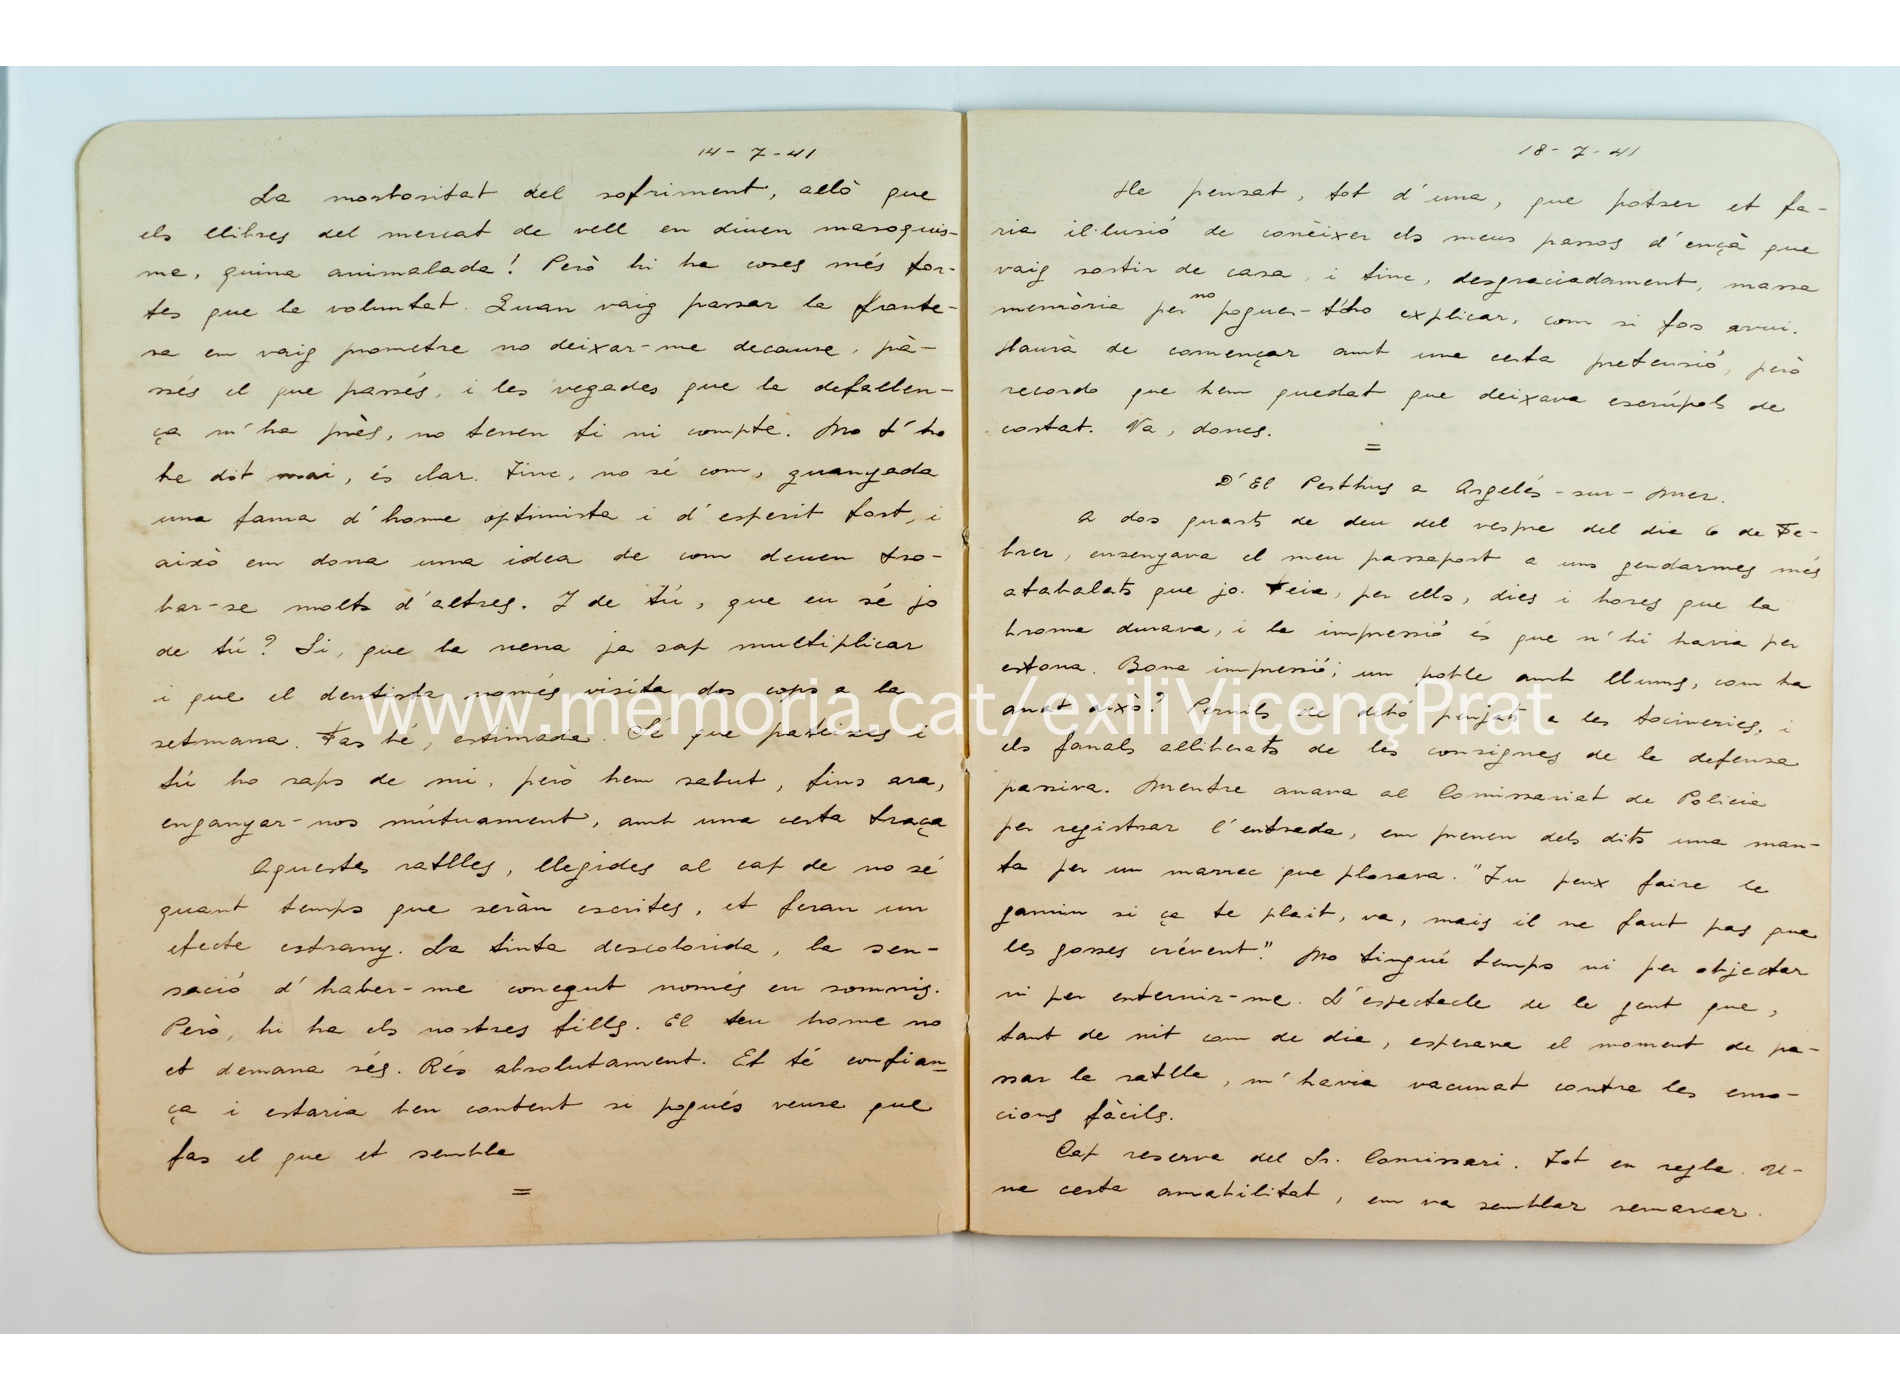 14-7-41
La morbositat del sofriment, allò que
els llibres del mercat de vell en diuen masoquis-
me, quina animalada! Però hi ha coses més for-
tes que la voluntat. Quan vaig passar la fronte-
ra em vaig prometre no deixar-me decaure, pà-
ssés el que passés, i les vegades que la defallen-
ça m'ha près, no tenen fi ni compte. No t'ho
he dit mai, és clar. Tinc, no sé com, guanyada
una fama d'home optimista i d'esperit fort, i
això em dona una idea de com deuen tro-
bar-se molts d'altres. I de tú, que en sé jo
de tú? Si, que la nena ja sap multiplicar
i que el dentista només visita dos cops a la
setmana. Fas bé, estimada. Sé que pateixes i
tú ho saps de mi, però hem sabut, fins ara,
enganyar-nos mútuament, amb una certa traça
Aquestes ratlles, llegides al cap de no sé
quant temps que seràn escrites, et feran un
efecte estrany. La tinta descolorida, la sen-
sació d'haber-me conegut només en somnis.
Però, hi ha els nostres fills. El teu home no
et demana rés. Rés absolutament. Et té confian-
ça i estaria ben content si pogués veure que
fas el que et sembla
=
18-7-41
He pensat, tot d'una, que potser et fa-
ria il·lusió de conèixer els meus passos d'ençà que
vaig sortir de casa, i tinc, desgraciadament, massa
memòria per no poguer-t'ho explicar, com si fos avui.
Haurà de començar amb una certa pretensió, però
recordo que hem quedat que deixava escrúpols de
costat. Va, doncs.
=
D'El Perthus a Argelés-sur-Mer.
A dos quarts de deu del vespre del dia 6 de Fe-
brer, ensenyava el meu passaport a uns gendarmes més
atabalats que jo. Feia, per ells, dies i hores que la
broma durava, i la impressió és que n'hi havia per
estona. Bona impressió; un poble amb llums, com ha
anat això? Pernils de debó penjats a les tocineries, i
els fanals alliberats de les consignes de la defensa
passiva. Mentre anava al Comissariat de Policia
per registrar l'entrada, em prenen dels dits una man-
ta per un marrec que plorava. "Tu peux faire le
gamin si ça te plait, va, mais il ne faut pas que
les gosses crévent". No tingué temps ni per objectar
ni per enternir-me. L'espectacle de la gent que,
tant de nit com de dia, esperava el moment de pa-
ssar la ratlla, m'havia vacunat contra les emo-
cions fàcils.
Cap reserva del Sr. Comissari. Tot en regla. U-
na certa amabilitat, em va semblar remarcar.
www.memoria.cat/exiliVicençPrat